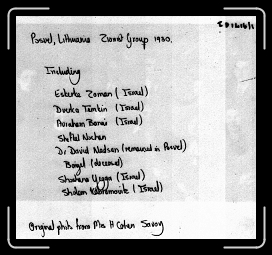 Posvel, Lithuania Zionist Group 1930.
Including
Esterke Zoman (Israel)
Dvorka Tamkin (Israel)
Avraham Barais (Israel)
Sheftel Nochan
Dr David Nadson (remained in Posvel)
Beigel (deceased)
Shoshana Yegga (Israel)
Sholem Abromovitz (Israel)
Original photo from Mrs H Cohen Savoy